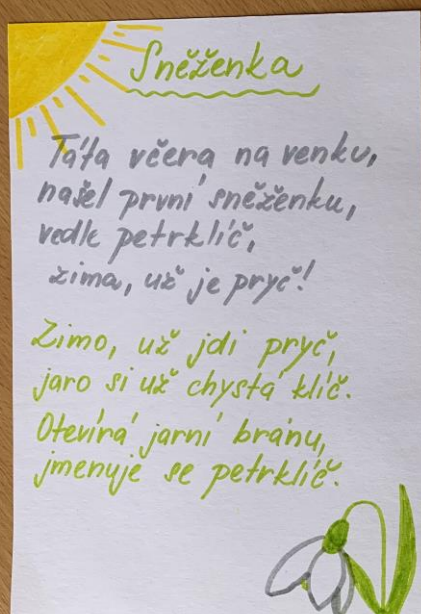 Sněženka
Táťa včera na venku,
našel první sněženku,
vedle petrklíč,
zima, už je pryč!
Zimo, už jdi pryč,
jaro si už chystá klíč.
Otevírá jarní bránu,
jmenuje se petrklíč.